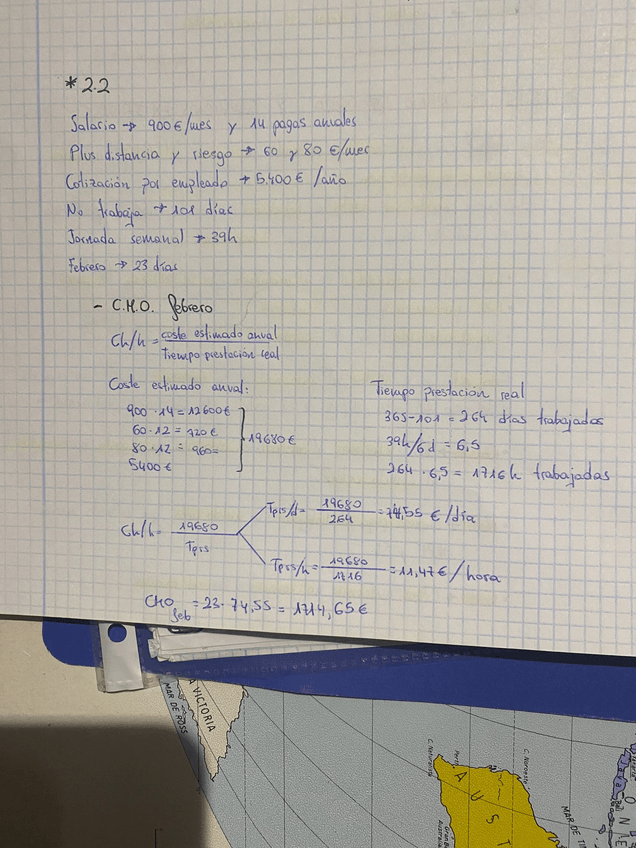 * 2.2
Salario → 900 €/mes y 14 pagas anuales
Plus distancia y riesgo → 60 y 80 €/mes
Cotización por empleado → 5.400 € /año
No trabaja → 101 días
Jornada semanal → 39h
Febrero → 23 días
- C.H.O. febrero
Ch/h = coste estimado anual / Tiempo prestación real
Coste estimado anual:
900 · 14 = 12600 €
60 · 12 = 720 €
80 · 12 = 960 =
5400 €
} 19680 €
Tiempo prestación real
365 - 101 = 264 días trabajados
39h/6d = 6,5
264 · 6,5 = 1716 h trabajadas
Ch/h = 19680 / Tprs
Tprs/d = 19680 / 264 = 74,55 € /día
Tprs/h = 19680 / 1716 = 11,47 € / hora
CHO feb = 23 · 74,55 = 1714,65 €
A VICTORIA
MAR DE ROSS
C. Noroeste
A U S T
Gran Ba
Australia
MAR DE TI